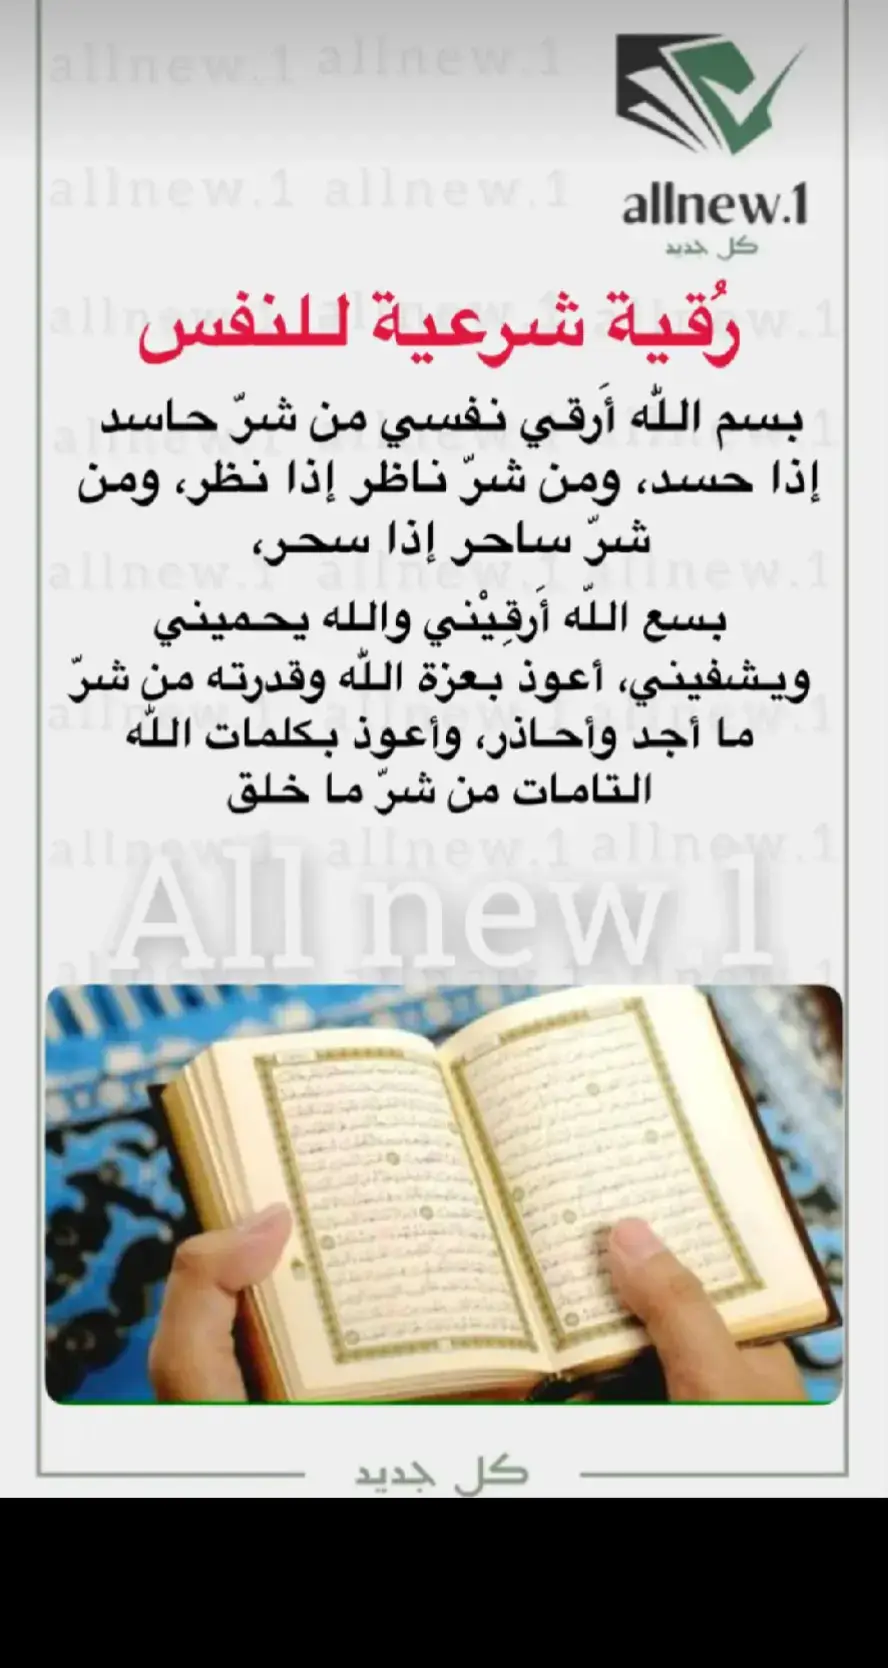 allnew.1 allnew.1
allnew.1 allnew.1
allnew.1
كل جديد
رُقية شرعية للنفس
بسم الله أَرقي نفسي من شرّ حاسد
إذا حسد، ومن شرّ ناظر إذا نظر، ومن
شرّ ساحر إذا سحر،
بسع الله أَرقِيْني والله يحميني
ويشفيني، أعوذ بعزة الله وقدرته من شرّ
ما أجد وأحاذر، وأعوذ بكلمات الله
التامات من شرّ ما خلق
allnew.1 allnew.1 allnew.1
All new.1
كل جديد